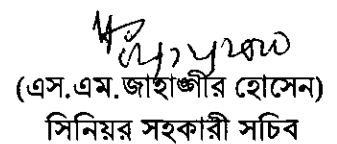 (এস.এম.জাহাঙ্গীর হোসেন)
সিনিয়র সহকারী সচিব